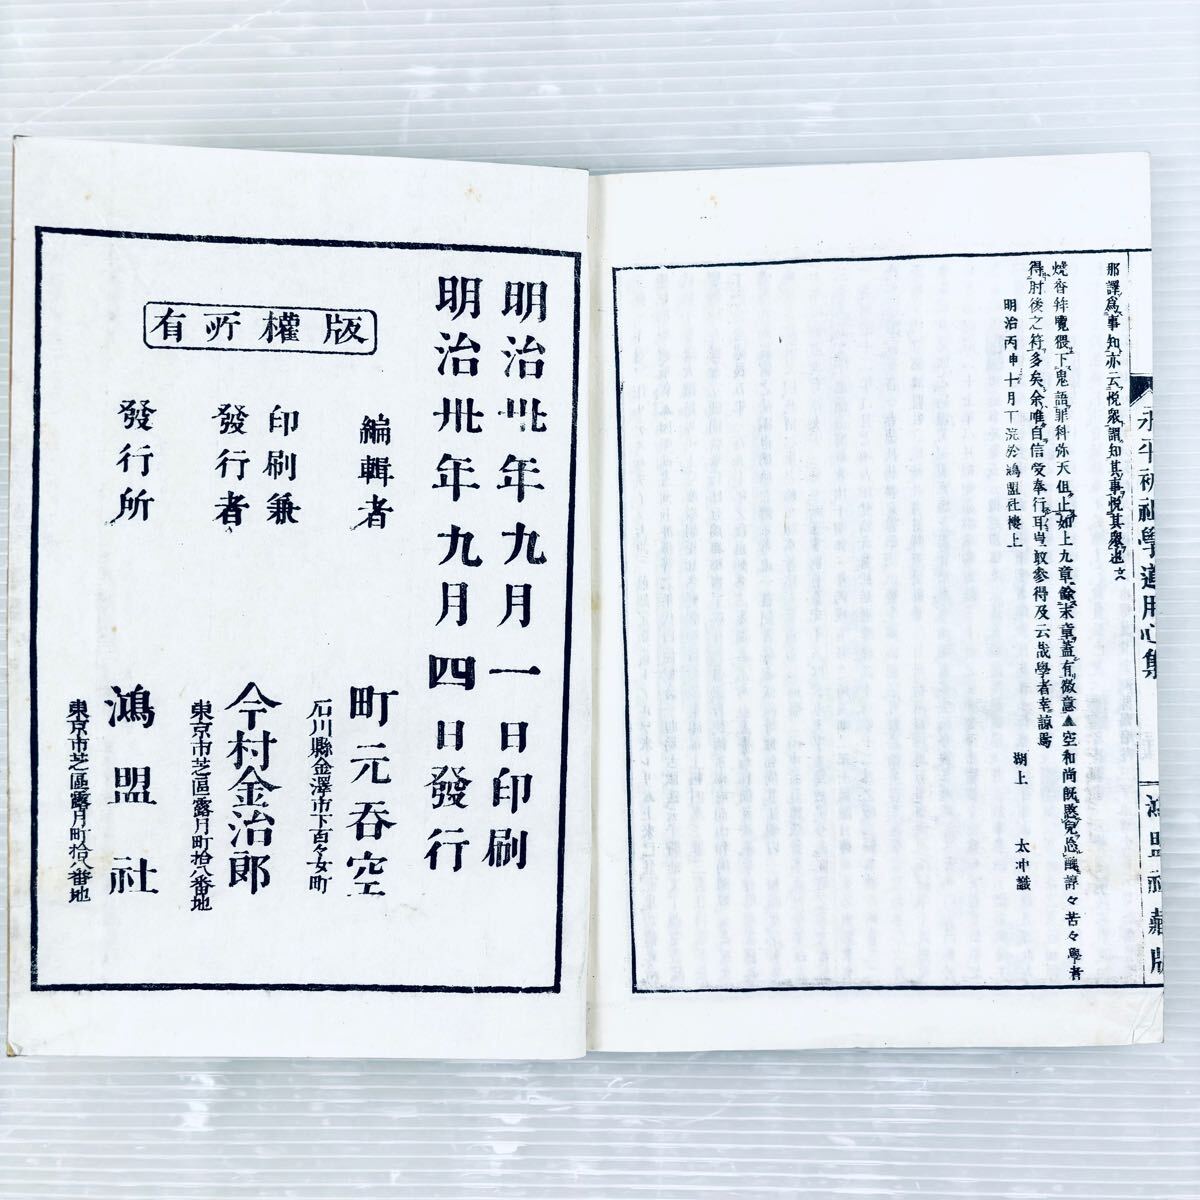 永平初祖學道用心集
鴻盟社藏版
那譯爲事知亦云悅衆謂知其事悅其衆也文
燒香拜覽猥下鬼語罪科弥天但止如上九章餘末章蓋有微意▲空和尚既愍兒怂醜諄々苦々學者
得肘後之符多矣余唯自信受奉行耳豈敢參得及云哉學者幸諒焉
明治丙申十月丁浣於鴻盟社樓上
湖上 太冲識
明治卅年九月一日印刷
明治卅年九月四日發行
版權所有
編輯者 町元呑空
石川縣金澤市下百々女町
印刷兼
發行者 今村金治郎
東京市芝區露月町拾八番地
發行所 鴻盟社
東京市芝區露月町拾八番地